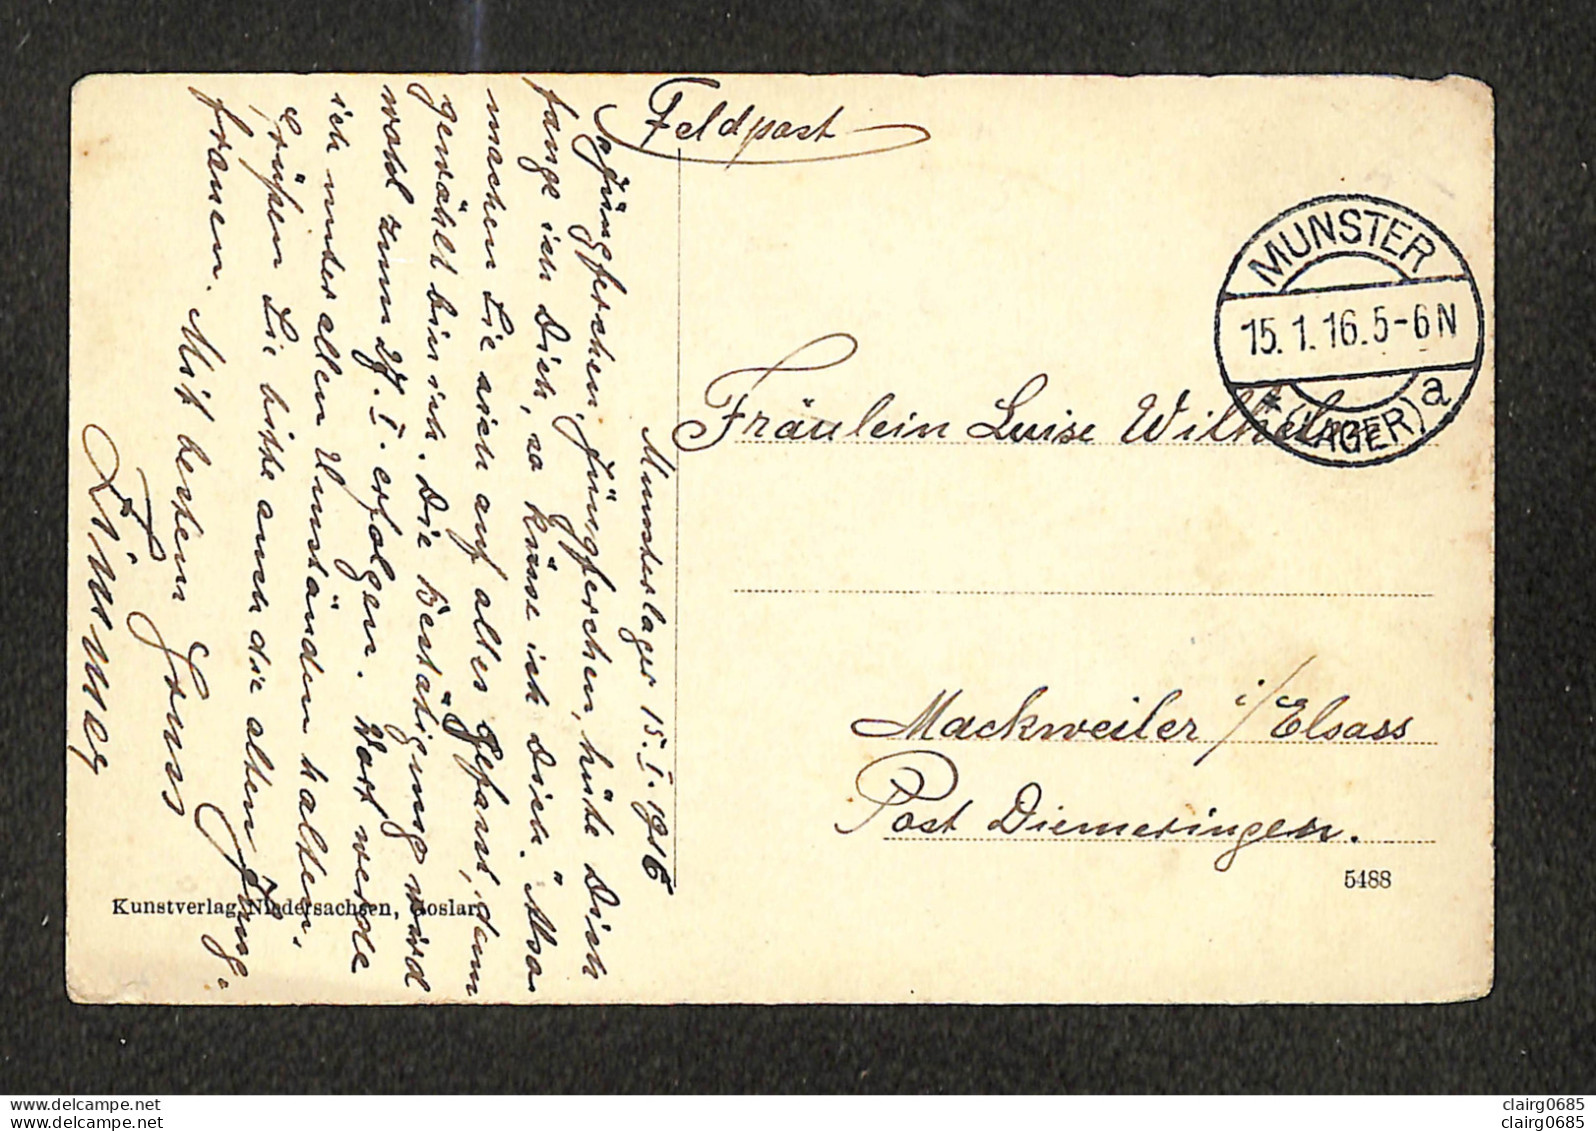 Feldpost
MUNSTER
15.1.16.5-6N
* (LAGER) a
Fräulein Luise Wilhelm
Mackweiler i/Elsass
Post Diemeringen.
5488
Kunstverlag Niedersachsen, Goslar.
Munsterlager 15. I. 1916
Ja Jüngferchen, Jüngferchen, hüte Dich
fange ich Dich, so küsse ich Dich. Also
machen Sie sich auf alles gefasst, denn
gewählt bin ich. Die Bestätigung wird
wohl zum 27. I. erfolgen. Wort werde
ich unter allen Umständen halten.
Grüßen Sie bitte auch die alten Jung-
frauen. Mit bestem Gruss